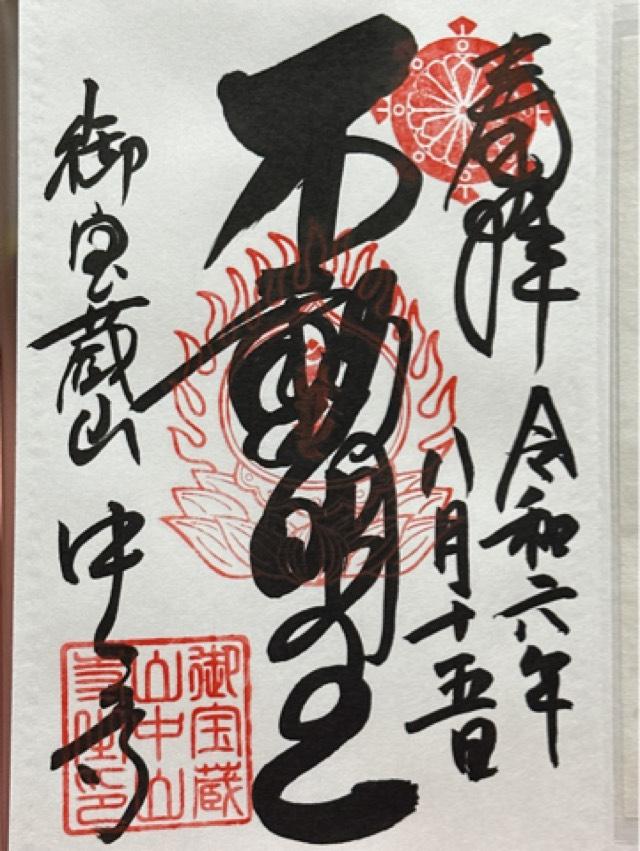 奉拝 令和六年
八月十五日
不動明王
御宝蔵山 中山寺
御宝蔵
山中山